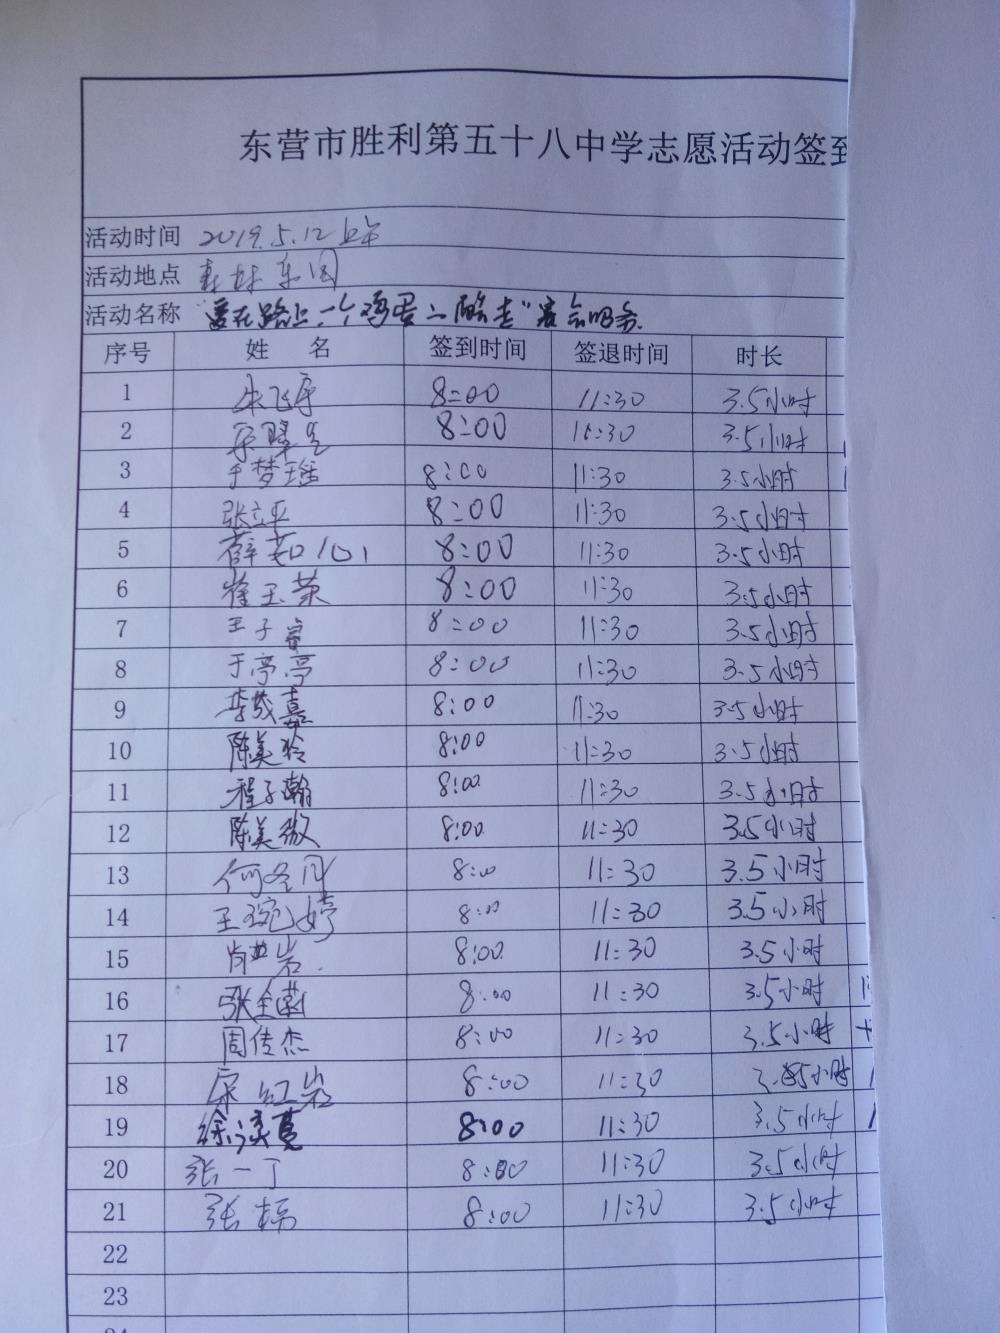 东营市胜利第五十八中学志愿活动签到
活动时间 2019.5.12上午
活动地点 森林乐园
活动名称 "爱在路上·一个鸡蛋的酷走"赛会服务
序号 姓 名 签到时间 签退时间 时长
1 朱飞宇 8:00 11:30 3.5小时
2 8:00 11:30 3.5小时
3 于梦瑶 8:00 11:30 3.5小时
4 张立平 8:00 11:30 3.5小时
5 薛如心 8:00 11:30 3.5小时
6 崔玉荣 8:00 11:30 3.5小时
7 王子睿 8:00 11:30 3.5小时
8 于亭亭 8:00 11:30 3.5小时
9 李嘉 8:00 11:30 3.5小时
10 陈美玲 8:00 11:30 3.5小时
11 程子瀚 8:00 11:30 3.5小时
12 陈美微 8:00 11:30 3.5小时
13 何冬月 8:00 11:30 3.5小时
14 王琬婷 8:00 11:30 3.5小时
15 肖岩 8:00 11:30 3.5小时
16 张全莉 8:00 11:30 3.5小时
17 周传杰 8:00 11:30 3.5小时
18 宋红岩 8:00 11:30 3.5小时
19 徐 8:00 11:30 3.5小时
20 张一丁 8:00 11:30 3.5小时
21 张 8:00 11:30 3.5小时
22
23